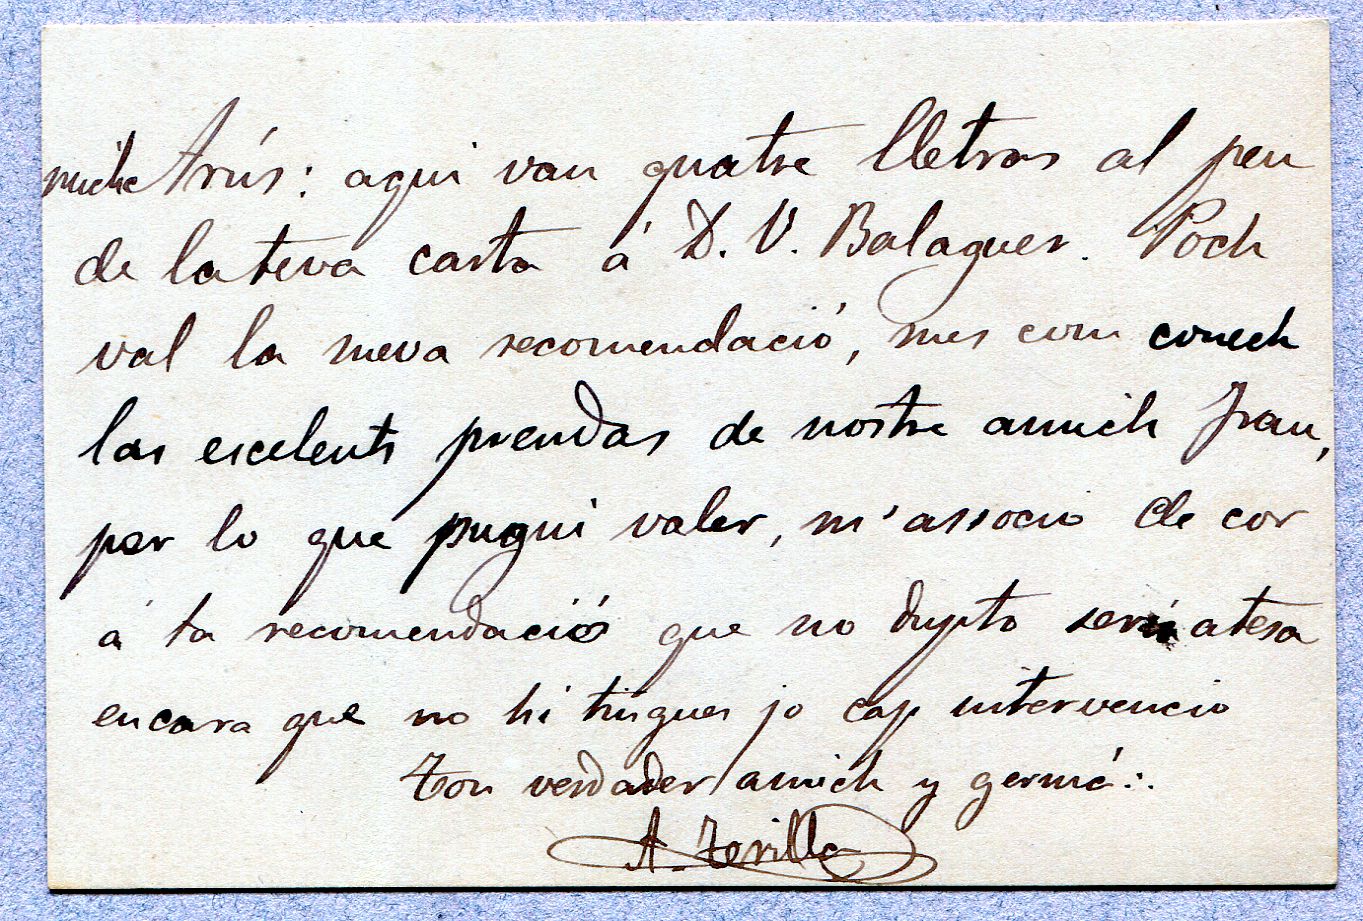 miche Arús: aqui van quatre lletras al peu
de la teva carta á D. V. Balaguer. Poch
val la meva recomendació, mes com conech
las escelents prendas de nostre amich Fran,
per lo que pugui valer, m'associo de cor
á ta recomendació que no dupto será atesa
encara que no hi tingues jo cap intervencio
Ton verdader amich y germá∴
A.